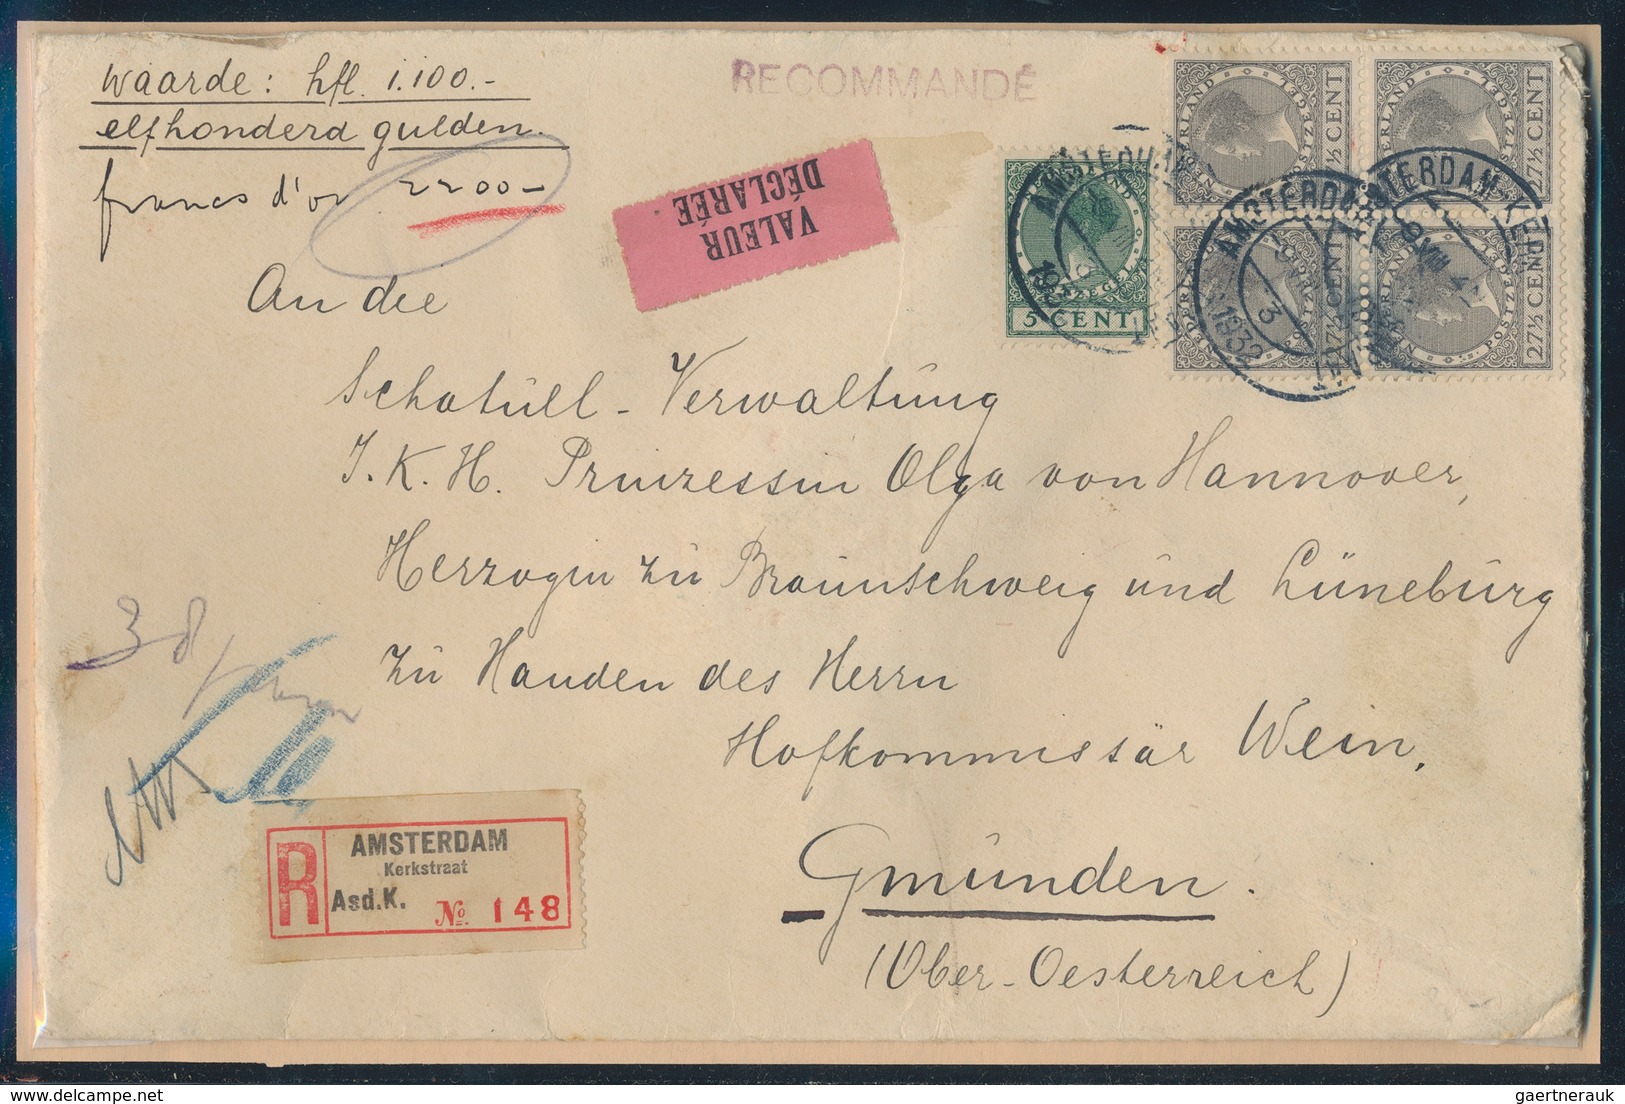 waarde: hfl. 1.100.-
elfhonderd gulden.
francs d'or 2200-
RECOMMANDÉ
VALEUR
DÉCLARÉE
NEDERLAND
POSTZEGEL
27½ CENT
NEDERLAND
POSTZEGEL
27½ CENT
5 CENT
NEDERLAND
POSTZEGEL
27½ CENT
POSTZEGEL
27½ CENT
AMSTERDAM
AMSTERDAM
1932
An die
Schatüll-Verwaltüng
I.K.H. Prinzessin Olga von Hannover,
Herzogin zu Braunschweig und Lüneburg
zu Handen des Herrn
Hofkommissär Wein,
Gmünden.
(Ober-Oesterreich)
38
R
AMSTERDAM
Kerkstraat
Asd.K.
No. 148
gaertnerauk